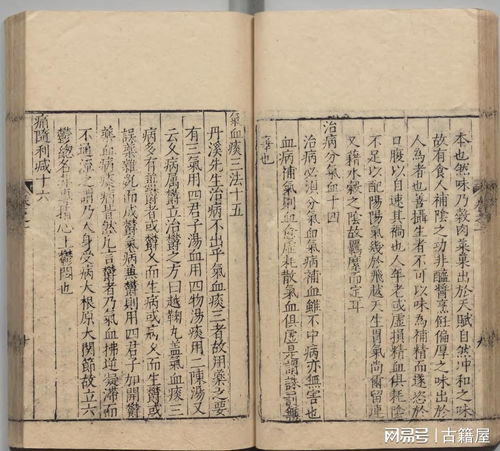 本也然味乃穀肉菜菓出於天賦自然冲和之味
故有食人補陰之功非醯醬烹飪偏厚之味出於
人爲者也善攝生者不可以味爲補精而遂恣於
口腹以自速其禍也人年老或虛損精血俱耗陰
不足以配陽陽氣幾於飛越天生胃氣尚爾留連
又藉水穀之陰故羈縻而定耳
治病分氣血十四
治病必須分氣血氣病補血雖不中病亦無害也
血病補氣則血愈虛耗散氣血俱虛是
害也
氣血痰三法十五
丹溪先生治病不出乎氣血痰三者故用藥之要
有三氣用四君子湯血用四物湯痰用二陳湯又
云久病属鬱立治鬱之方曰越鞠丸盖氣血痰三
病多有兼鬱者或鬱久而生病或病久而生鬱或
誤藥雜亂而成鬱故
藥血病痰病皆然凡言鬱者乃氣血拂逆凝滯而
不通運之謂乃人身受病大根原大關節故立六
鬱總名
心上鬱悶也
痛隨利减十六
九
十
网易号 | 古籍屋